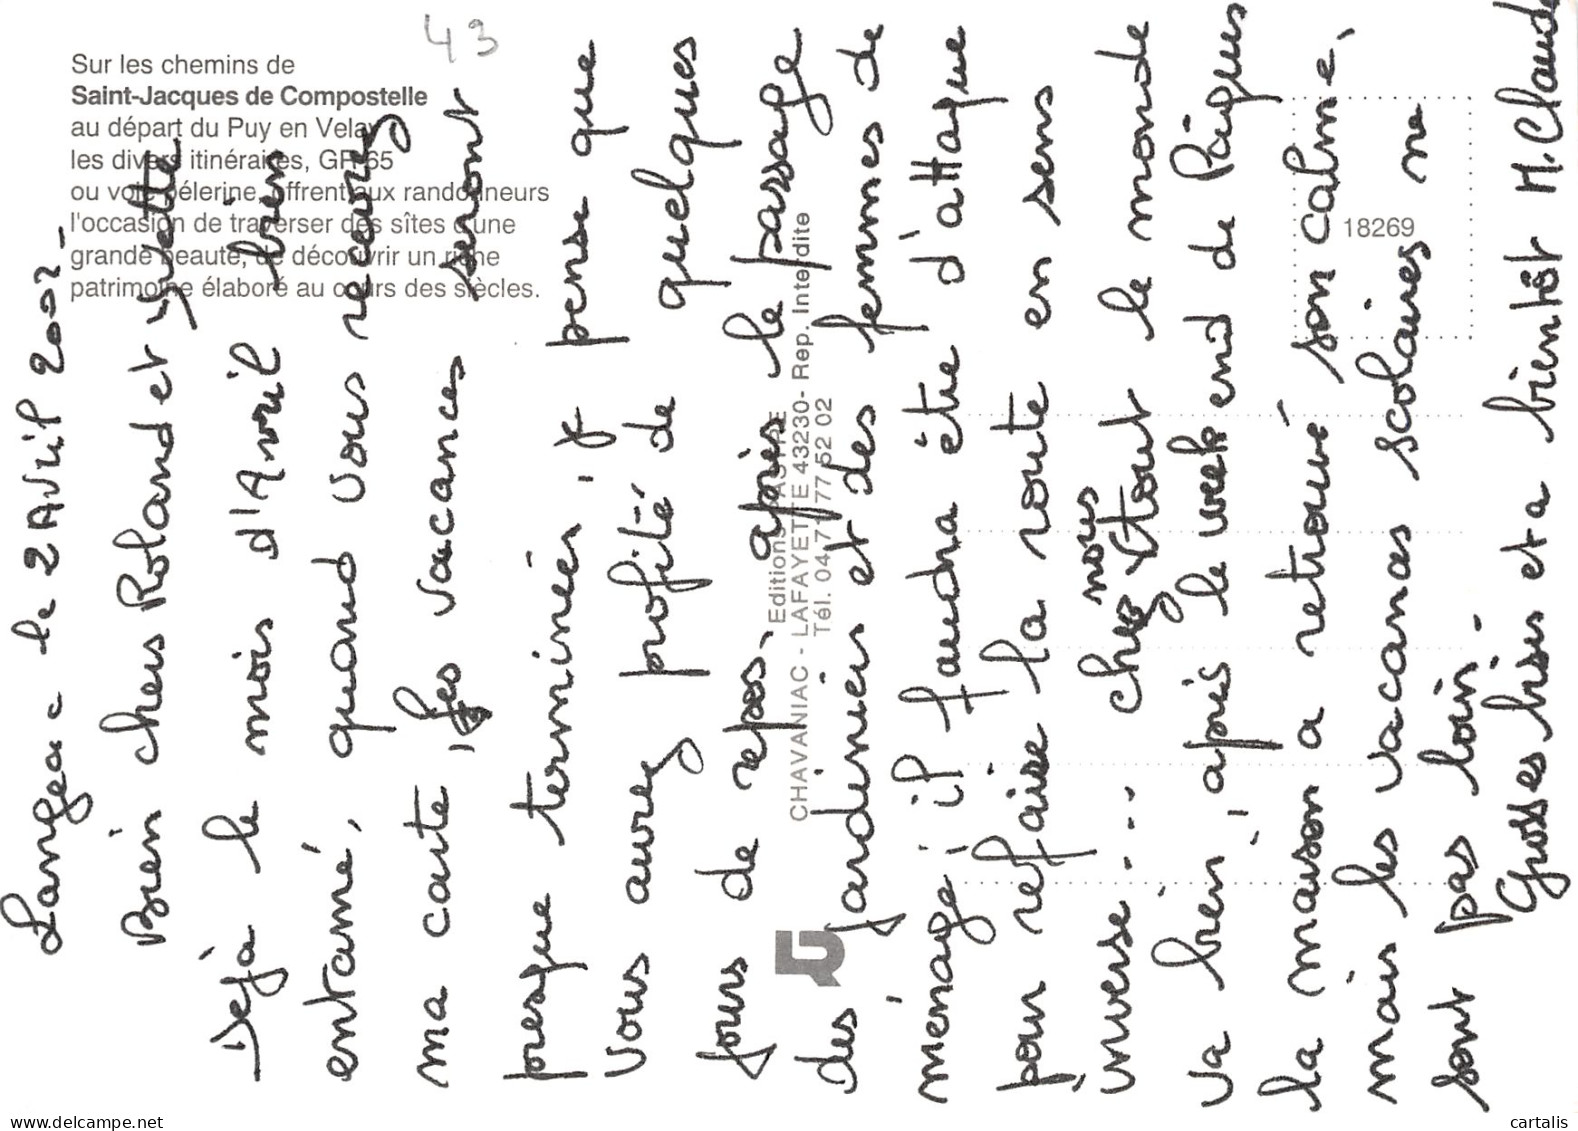 43
Sur les chemins de
Saint-Jacques de Compostelle
au départ du Puy en Velay
les divers itinéraires, GR 65
ou voie pélerine, offrent aux randonneurs
l'occasion de traverser des sîtes d'une
grande beauté, de découvrir un riche
patrimoine élaboré au cours des siècles.
18269
Editions
CHAVANIAC - LAFAYETTE 43230- Rep. Interdite
Tél. 04 71 77 52 02
Langeac le 2 Avril 2002
Bien chers Roland et Yvette
Déjà le mois d'Avril bien
entamé, quand vous recevrez
ma carte, les vacances seront
presque terminées, je pense que
vous aurez profité de quelques
jours de repos, après le passage
des jardiniers et des femmes de
ménage, il faudra être d'attaque
pour refaire la route en sens
inverse... chez nous tout le monde
va bien, après le week end de Pâques
la maison a retrouvé son calme,
mais les vacances scolaires ne
sont pas loin.
Grosses bises et a bientôt M. Claude
www.delcampe.net
cartalis